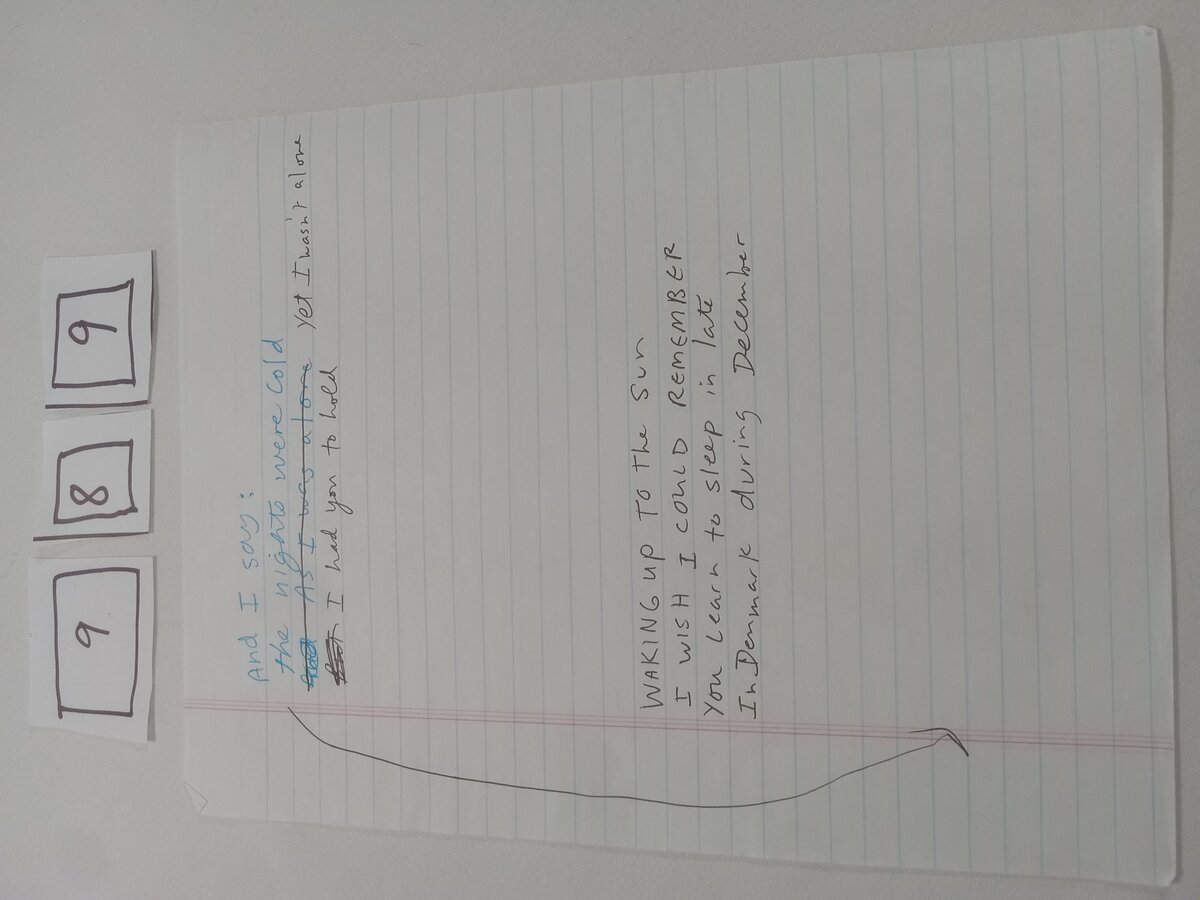 9
8
9
And I say:
the nights were cold
As I was alone yet I wasn't alone
I had you to hold
WAKING up TO The Sun
I WISH I COULD REMEMBER
You Learn to sleep in late
In Denmark during December